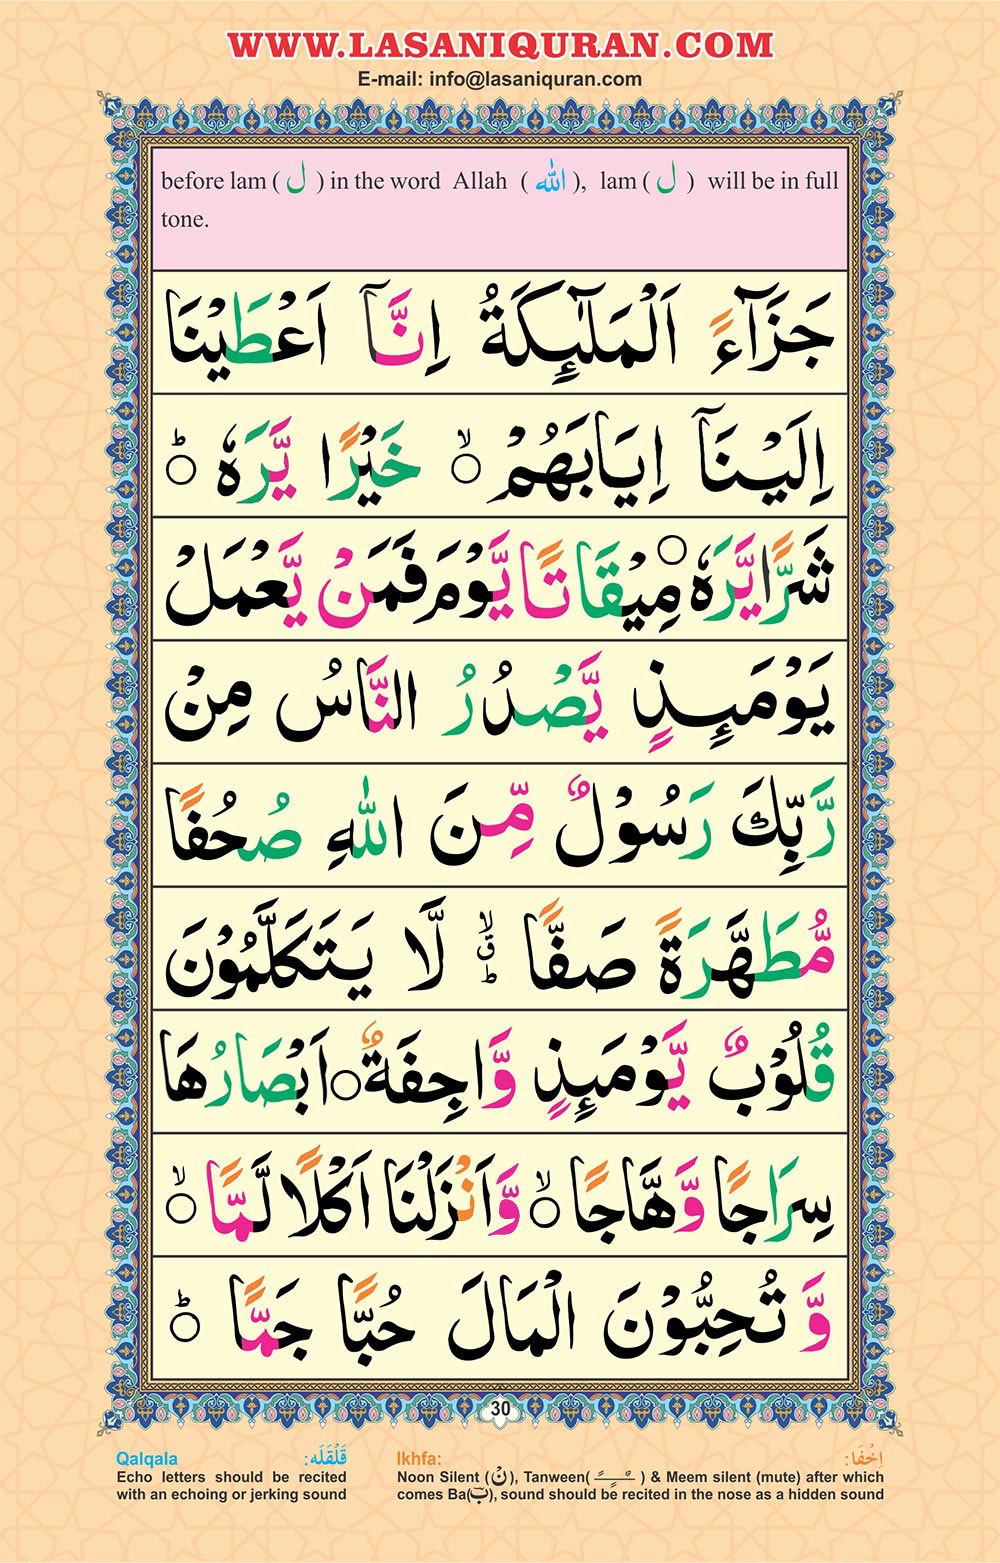 WWW.LASANIQURAN.COM
E-mail: info@lasaniquran.com
before lam ( ل ) in the word Allah ( اللّٰه ), lam ( ل ) will be in full
tone.
جَزَآءً اَلْمَلٰٓئِكَةُ اِنَّآ اَعْطَيْنَا
اِلَيْنَآ اِيَابَهُمْ ۙ○ خَيْرًا يَّرَهٗ ؕ○
شَرًّا يَّرَهٗ ○ مِيْقَاتًا يَّوْمَ فَمَنْ يَّعْمَلْ
يَوْمَئِذٍ يَّصْدُرُ النَّاسُ مِنْ
رَّبِّكَ رَسُوْلٌ مِّنَ اللّٰهِ صُحُفًا
مُّطَهَّرَةً صَفًّا ۙ ق ؕ لَّا يَتَكَلَّمُوْنَ
قُلُوْبٌ يَّوْمَئِذٍ وَّاجِفَةٌ ○ اَبْصَارُهَا
سِرَاجًا وَّهَّاجًا ۙ○ وَّاَنْزَلْنَا اَكْلًا لَّمًّا ۙ○
وَّ تُحِبُّوْنَ الْمَالَ حُبًّا جَمًّا ؕ○
30
Qalqala قَلْقَلَه:
Echo letters should be recited
with an echoing or jerking sound
Ikhfa: اِخْفَا:
Noon Silent (نْ), Tanween( ــًــٍــٌ ) & Meem silent (mute) after which
comes Ba(ب), sound should be recited in the nose as a hidden sound